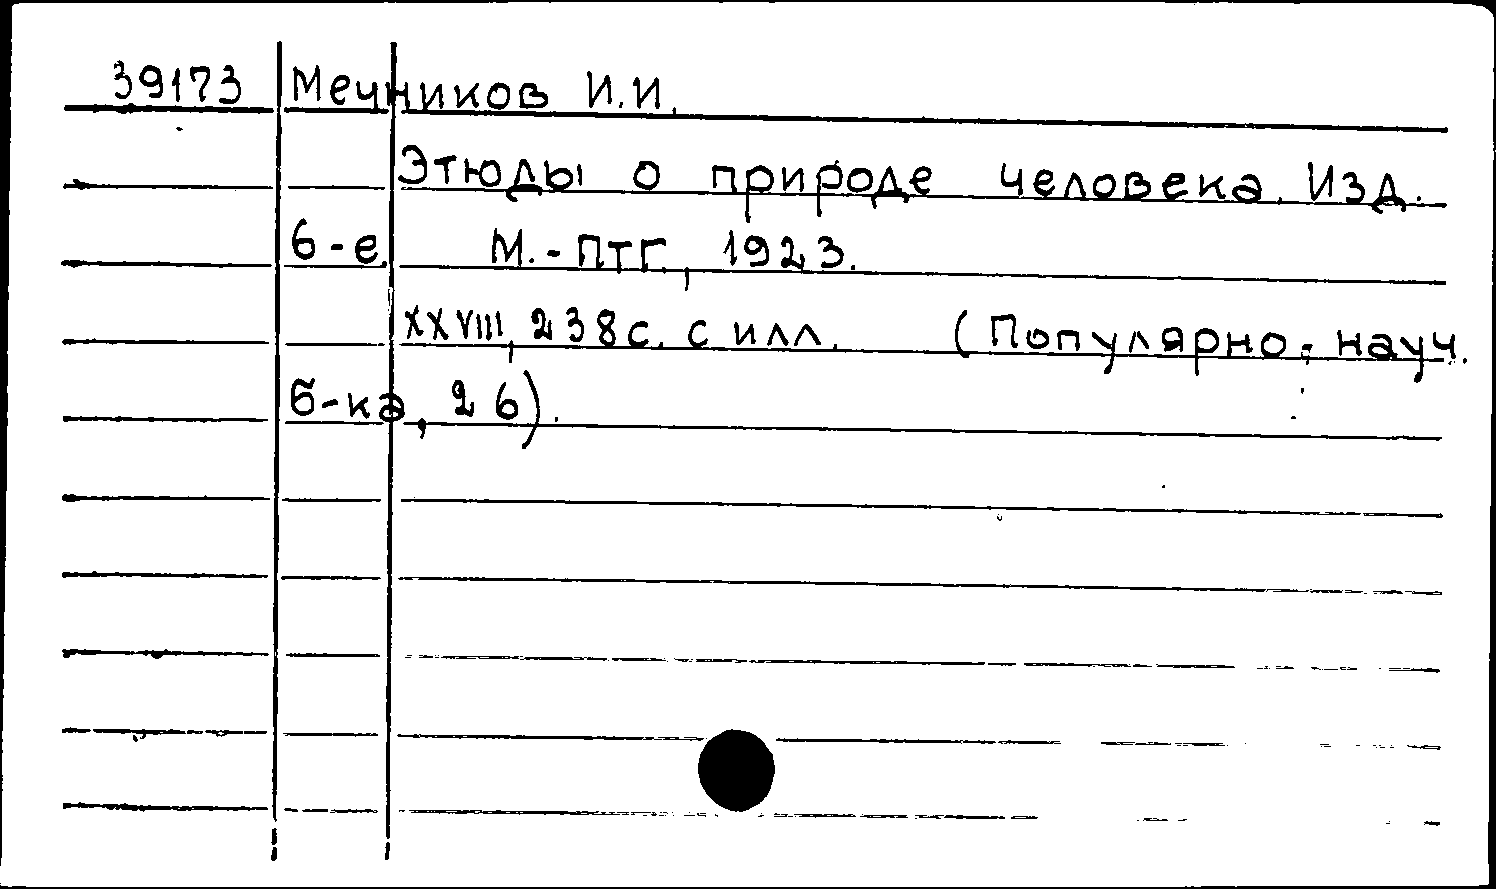 39173 Мечников И.И.
Этюды о природе человека. Изд.
6-е. М.-Птг., 1923.
XXVIII, 238с. с илл. (Популярно-науч.
б-ка, 26).